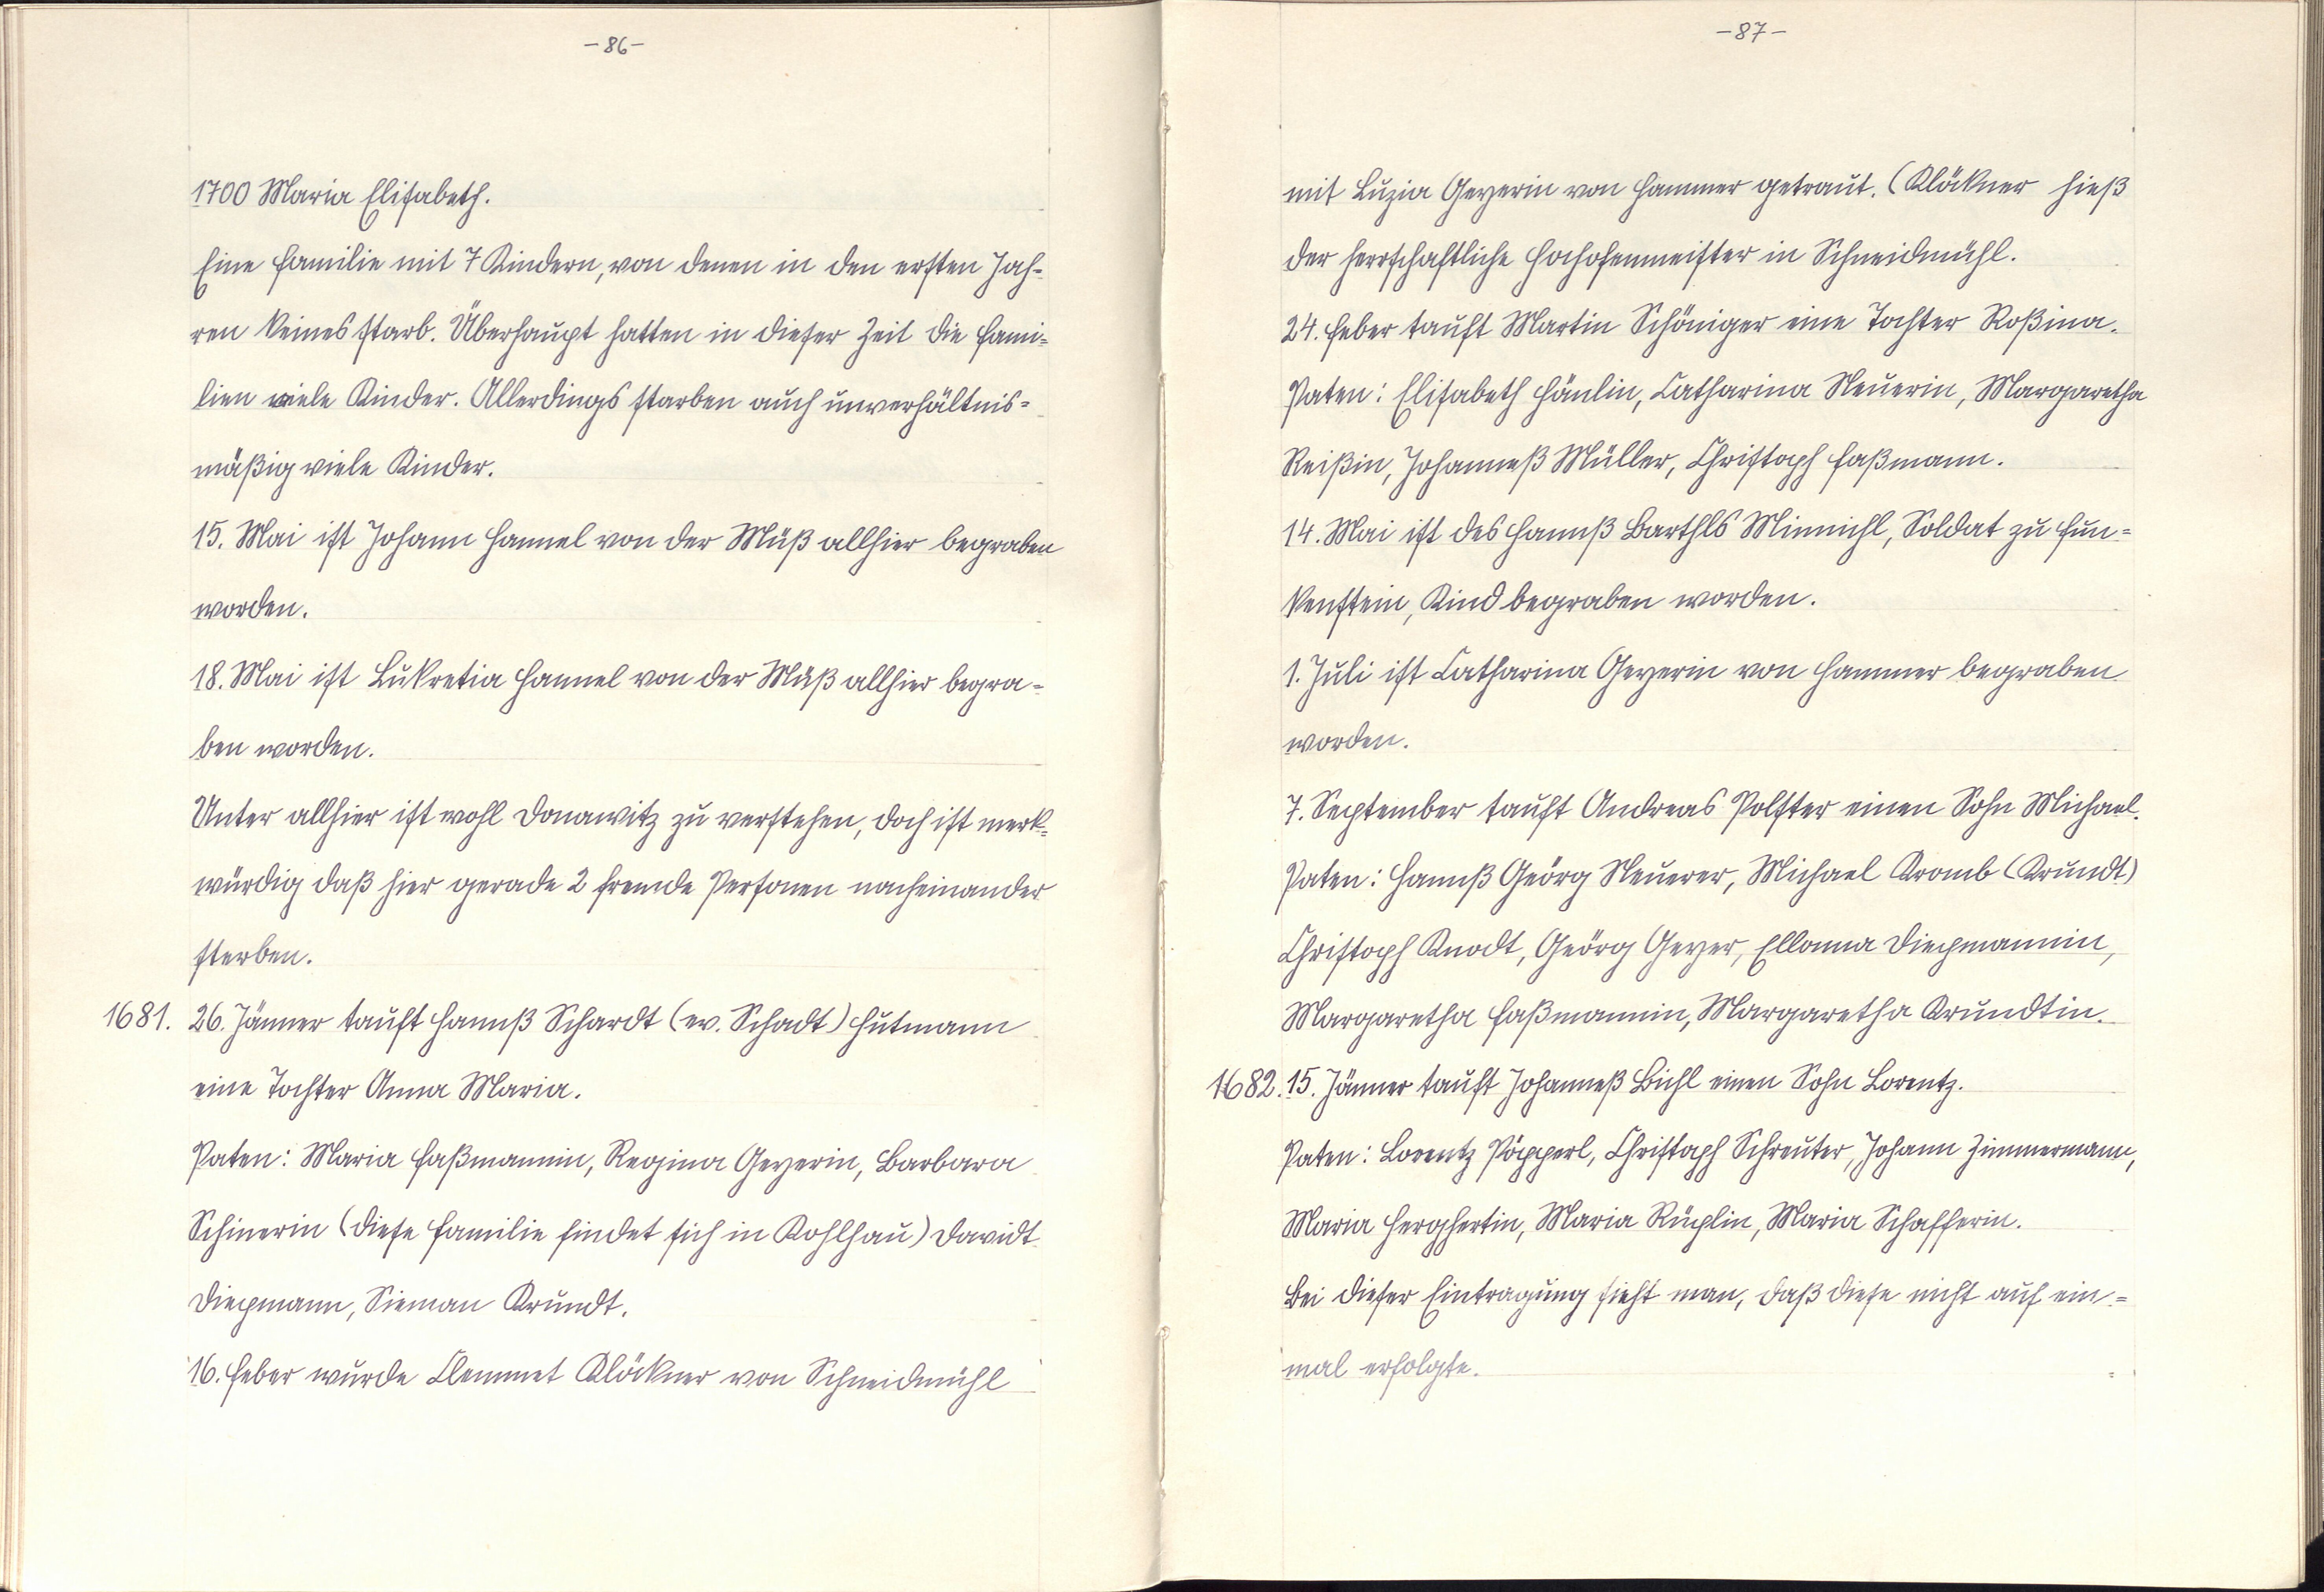 -86-
1700 Maria Elisabeth.
Eine Familie mit 7 Kindern, von denen in den ersten Jah-
ren keines starb. Überhaupt hatten in dieser Zeit die Fami-
lien viele Kinder. Allerdings starben auch unverhältnis-
mäßig viele Kinder.
15. Mai ist Johann Hannel von der Müß allhier begraben
worden.
18. Mai ist Lukretia Hannel von der Müß allhier begra-
ben worden.
Unter allhier ist wohl Donawitz zu verstehen, doch ist merk-
würdig daß hier gerade 2 fremde Personen nacheinander
sterben.
1681. 26. Jänner tauft Hannß Schardt (ev. Schadt) Hutmann
eine Tochter Anna Maria.
Paten: Maria Faßmannin, Regina Geyerin, Barbara
Schinerin (diese Familie findet sich in Kohlhau) Davidt
Diepmann, Sieman Krundt.
16. Feber wurde Clemmet Klöckner von Schneidmühl
-87-
mit Luzia Geyerin von Hammer getraut. (Klöckner hieß
der herrschaftliche Hochofenmeister in Schneidmühl.
24. Feber tauft Martin Schöniger eine Tochter Roßina.
Paten: Elisabeth Hänlin, Catharina Neuerin, Margaretha
Reißin, Johanneß Müller, Christoph Faßmann.
14. Mai ist des Hannß Barthls Minnichl, Soldat zu Fun-
kenstein, Kind begraben worden.
1. Juli ist Catharina Geyerin von Hammer begraben
worden.
7. September tauft Andreas Polster einen Sohn Michael.
Paten: Hannß Geörg Neuerer, Michael Kromb (Krundt)
Christoph Knodt, Geörg Geyer, Ellonna Diepmannin,
Margaretha Faßmannin, Margaretha Krundtin.
1682. 15. Jänner tauft Johanneß Bichl einen Sohn Lorentz.
Paten: Lorentz Pöpperl, Christoph Schreuter, Johann Zimmermann,
Maria Herghertin, Maria Rüplin, Maria Schafferin.
Bei dieser Eintragung sieht man, daß diese nicht auf ein-
mal erfolgte.